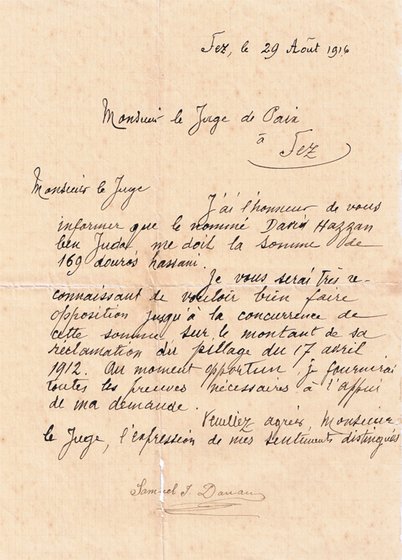 Fez, le 29 Août 1916
Monsieur le Juge de Paix
à
Fez
Monsieur le Juge
J'ai l'honneur de vous
informer que le nommé David Hazzan
ben Juda me doit la somme de
169 douros hassani.
Je vous serai très re-
connaissant de vouloir bien faire
opposition jusqu'à la concurrence de
cette somme sur le montant de sa
réclamation du pillage du 17 avril
1912. Au moment opportun je fournirai
toutes les preuves nécessaires à l'appui
de ma demande.
Veuillez agréer, Monsieur
le Juge, l'expression de mes sentiments distingués
Samuel J Danan